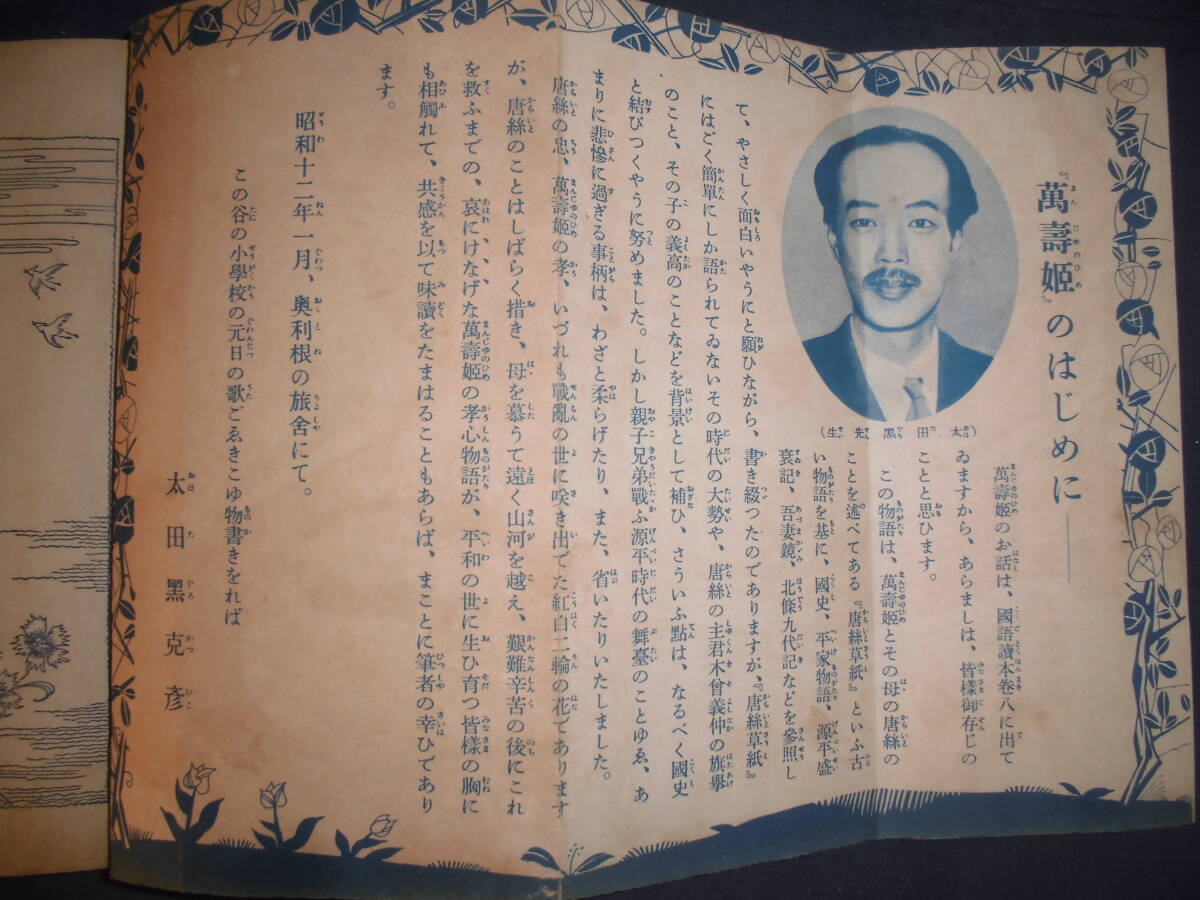 『萬壽姫』のはじめに――
萬壽姫のお話は、國語讀本卷八に出て
ゐますから、あらましは、皆樣御存じの
ことと思ひます。
この物語は、萬壽姫とその母の唐絲の
ことを述べてある『唐絲草紙』といふ古
い物語を基に、國史、平家物語、源平盛
衰記、吾妻鏡、北條九代記などを參照し
(太田黑先生)
て、やさしく面白いやうにと願ひながら、書き綴つたのでありますが、『唐絲草紙』
にはごく簡單にしか語られてゐないその時代の大勢や、唐絲の主君木曾義仲の旗擧
のこと、その子の義高のことなどを背景として補ひ、さういふ點は、なるべく國史
と結びつくやうに努めました。しかし親子兄弟戰ふ源平時代の舞臺のことゆゑ、あ
まりに悲慘に過ぎる事柄は、わざと柔らげたり、また、省いたりいたしました。
唐絲の忠、萬壽姫の孝、いづれも戰亂の世に咲き出でた紅白二輪の花であります
が、唐絲のことはしばらく措き、母を慕うて遠く山河を越え、艱難辛苦の後にこれ
を救ふまでの、哀にけなげな萬壽姫の孝心物語が、平和の世に生ひ育つ皆樣の胸に
も相觸れて、共感を以て味讀をたまはることもあらば、まことに筆者の幸ひであり
ます。
昭和十二年一月、奥利根の旅舍にて。
この谷の小學校の元日の歌ごゑきこゆ物書きをれば
太田黑克彥